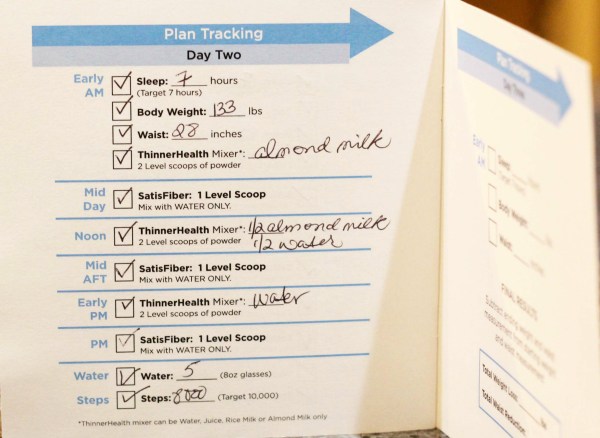 Plan Tracking
Day Two
Early AM
Sleep: 7 hours
(Target 7 hours)
Body Weight: 133 lbs
Waist: 28 inches
ThinnerHealth Mixer*: almond milk
2 Level scoops of powder
Mid Day
SatisFiber: 1 Level Scoop
Mix with WATER ONLY.
Noon
ThinnerHealth Mixer*: 1/2 almond milk
2 Level scoops of powder 1/2 water
Mid AFT
SatisFiber: 1 Level Scoop
Mix with WATER ONLY.
Early PM
ThinnerHealth Mixer*: Water
2 Level scoops of powder
PM
SatisFiber: 1 Level Scoop
Mix with WATER ONLY.
Water
Water: 5 (8oz glasses)
Steps
Steps: 8000 (Target 10,000)
*ThinnerHealth mixer can be Water, Juice, Rice Milk or Almond Milk only
Plan Tracking
Day Three
Early AM
Sleep:
Body Weight:
Waist:
FINAL RESULTS
Total Weight Loss:
Total Waist Reduction